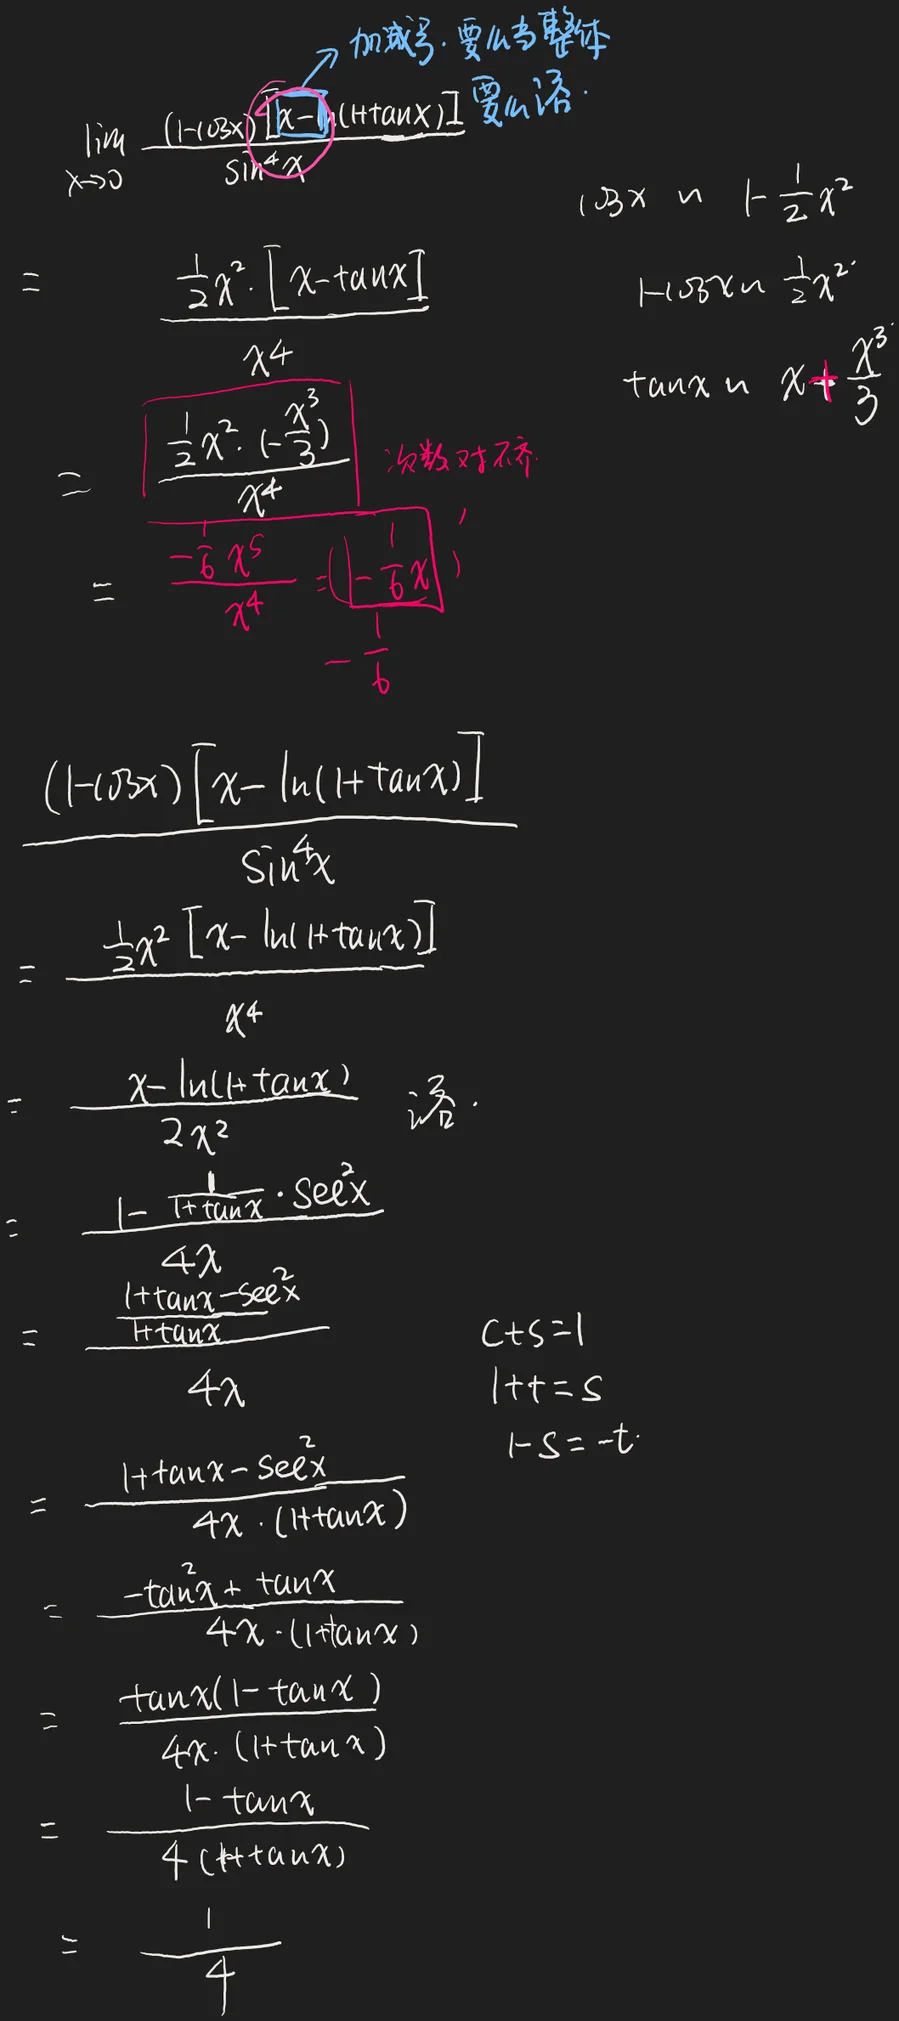 加减号.要么当整体
要么洛.
lim x→0 (1-cosx)[x-ln(1+tanx)] / sin⁴x
cosx ~ 1-1/2 x²
= 1/2 x²·[x-tanx] / x⁴
1-cosx ~ 1/2 x²
tanx ~ x+x³/3
= 1/2 x²·(-x³/3) / x⁴ 次数对不齐.
= -1/6 x⁵ / x⁴ = (1-1/6 x)
-1/6
(1-cosx)[x-ln(1+tanx)] / sin⁴x
= 1/2 x²[x-ln(1+tanx)] / x⁴
= x-ln(1+tanx) / 2x² 洛.
= 1-1/(1+tanx)·sec²x / 4x
= (1+tanx-sec²x)/(1+tanx) / 4x
c+s=1
1+t=s
1-s=-t.
= 1+tanx-sec²x / 4x·(1+tanx)
= -tan²x+tanx / 4x·(1+tanx)
= tanx(1-tanx) / 4x·(1+tanx)
= 1-tanx / 4(1+tanx)
= 1/4